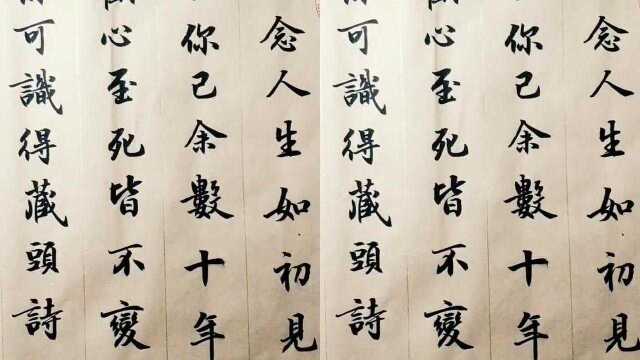 念人生如初見
你已余數十年
心至死皆不變
可識得藏頭詩
念人生如初見
你已余數十年
心至死皆不變
可識得藏頭詩